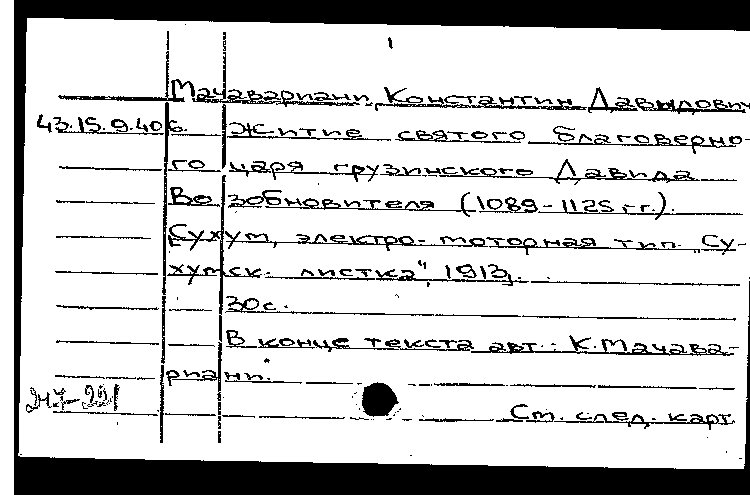 1
Мачавариани, Константин Давыдович
43.15.9.406. Житие святого благоверно-
го царя грузинского Давида
Возобновителя (1089-1125 гг.).
Сухум, электро-моторная тип. „Су-
хумск. листка", 1913.
30 с.
В конце текста авт.: К. Мачава-
риани.
247-221
См. след. карт.